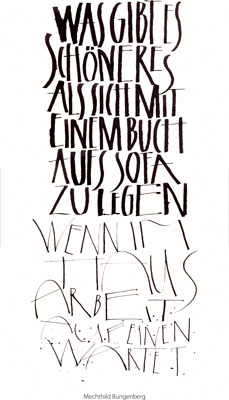 WAS GIBT ES
SCHÖNERES
ALS SICH MIT
EINEM BUCH
AUFS SOFA
ZU LEGEN
WENN IM
HAUS
ARBEIT
AUF EINEN
WARTET.
Mechthild Bungenberg